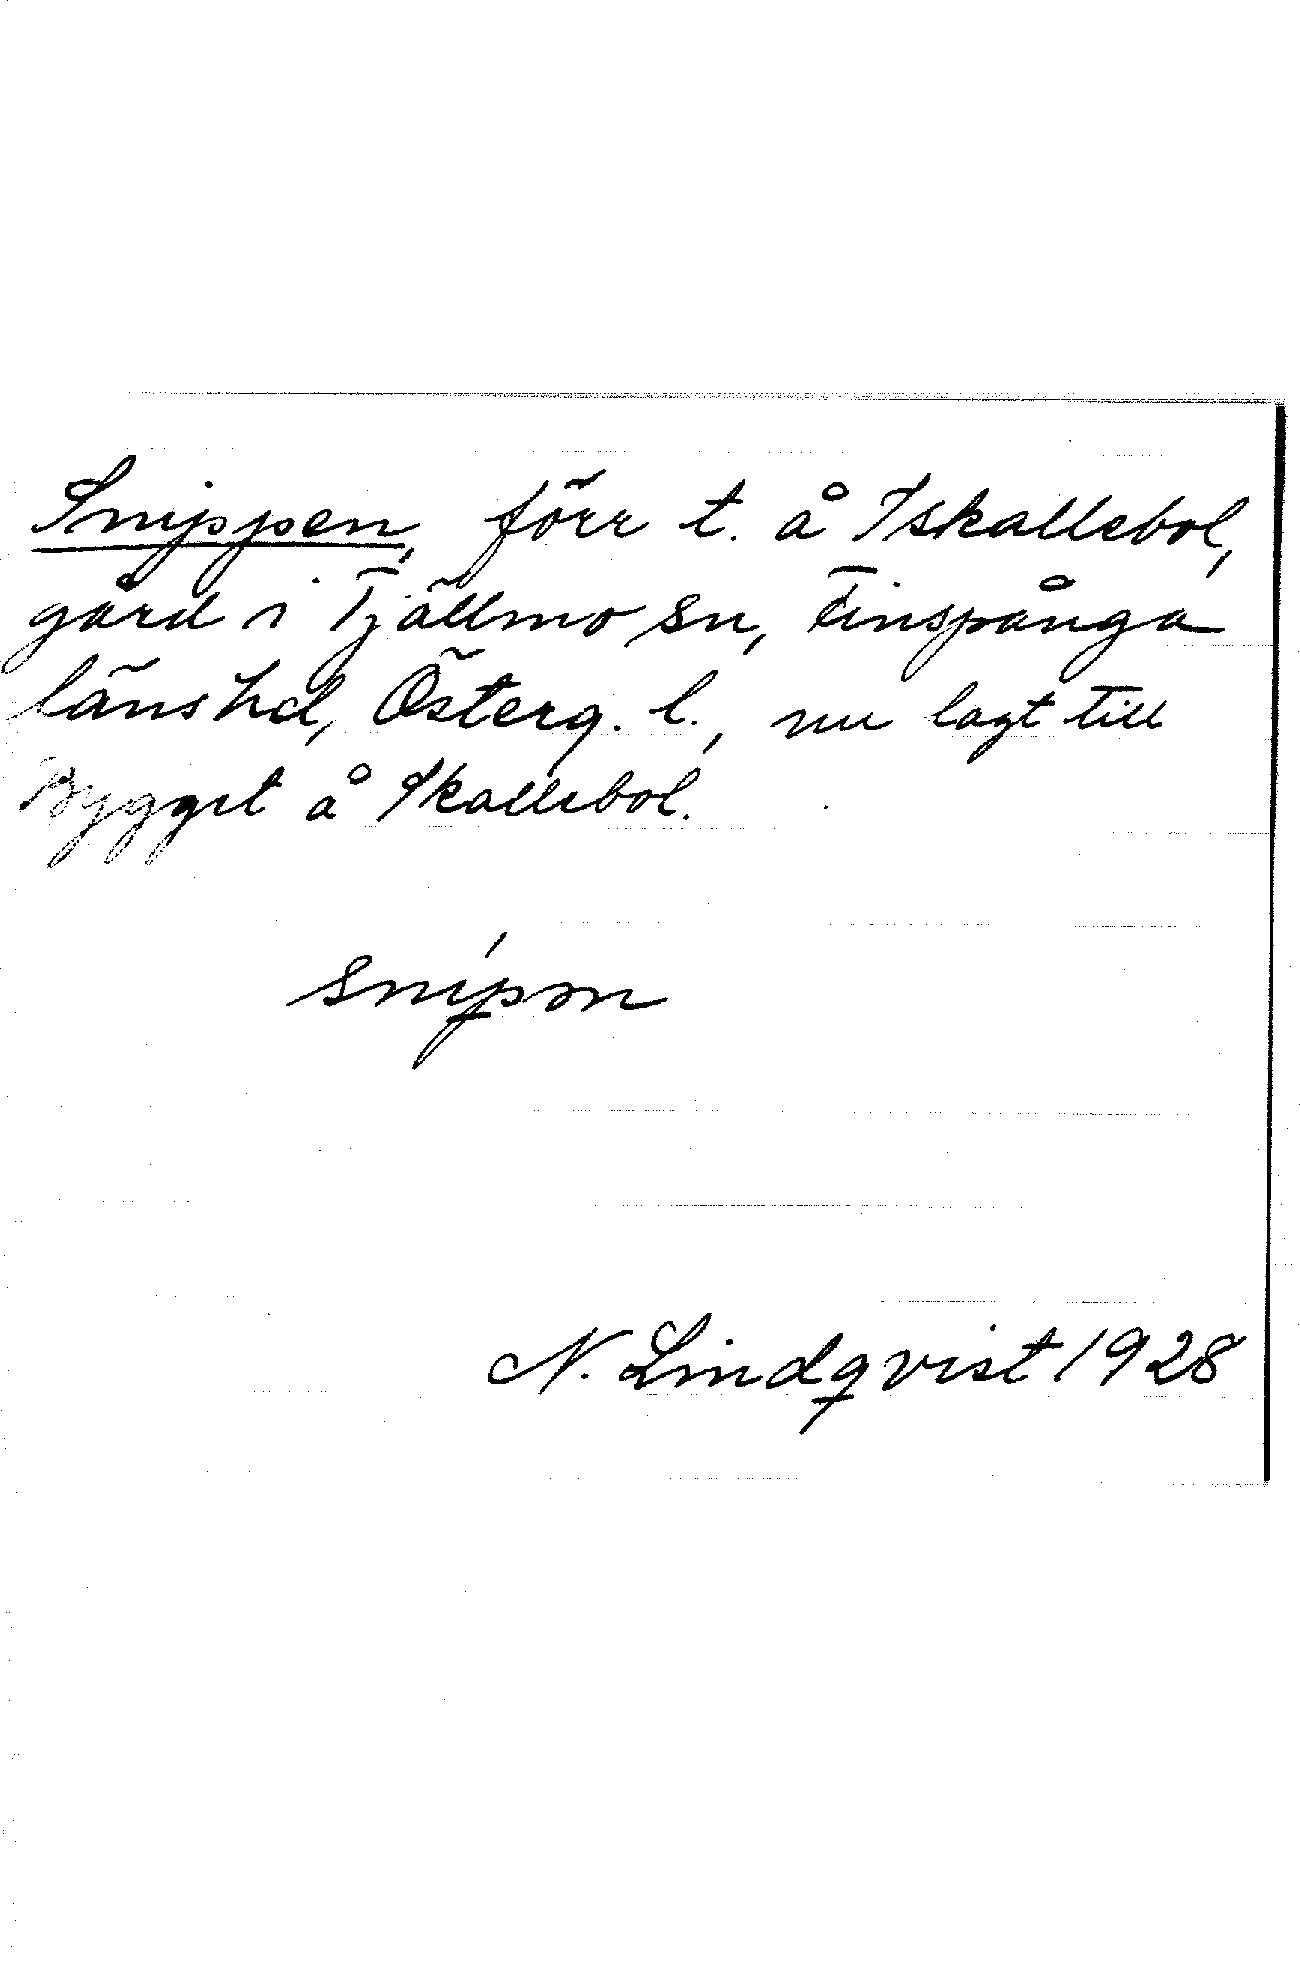 Snippen, förr t. å Skallebol,
gård i Tjällmo sn, Finspånga
länshd, Österg. l., nu lagt till
Bygget å Skallebol.
snípən
N. Lindqvist 1928